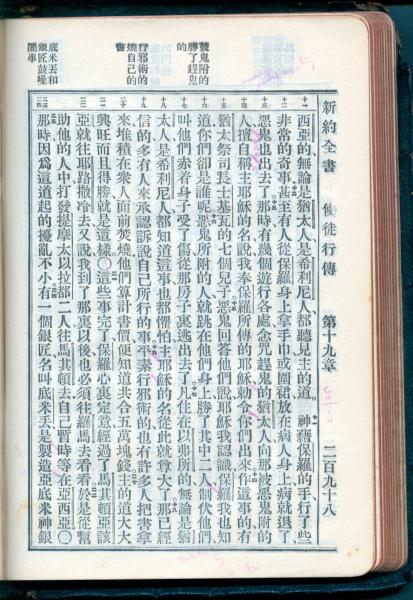 新約全書 使徒行傳 第十九章 二百九十八
西亞的無論是猶太人、是希利尼人、都聽見主的道。神藉保羅的手行了些
非常的奇事甚至有人從保羅身上拿手巾或圍裙放在病人身上病就退了
惡鬼也出去了那時有幾個遊行各處念咒趕鬼的猶太人向那被惡鬼附的
人擅自稱主耶穌的名說我奉保羅所傳的耶穌勅令你們出來作這事的有
猶太祭司長士基瓦的七個兒子惡鬼回答他們說耶穌我認識保羅我也知
道你們卻是誰呢惡鬼所附的人就跳在他們身上勝了其中二人制伏他們
叫他們赤着身子受了傷從那房子裏逃出去了凡住在以弗所的無論是猶
太人是希利尼人都知道這事也都懼怕主耶穌的名從此就尊大了那已經
信的多有人來承認訴說自己所行的事平素行邪術的也有許多人把書拿
來堆積在衆人面前焚燒他們算計書價便知道共合五萬塊錢主的道大大
興旺而且得勝就是這樣〇這些事完了保羅心裏定意經過了馬其頓亞該
亞就往耶路撒冷去又說我到了那裏以後也必須往羅馬去看看於是從幫
助他的人中打發提摩太以拉都二人往馬其頓去自己暫時等在亞西亞〇
那時因爲這道起的擾亂不小有一個銀匠名叫底米丟是製造亞底米神銀
被鬼附的
勝了趕鬼
的
行邪術的
燒自己的
書
底米丟和
銀匠鼓噪
鬧事